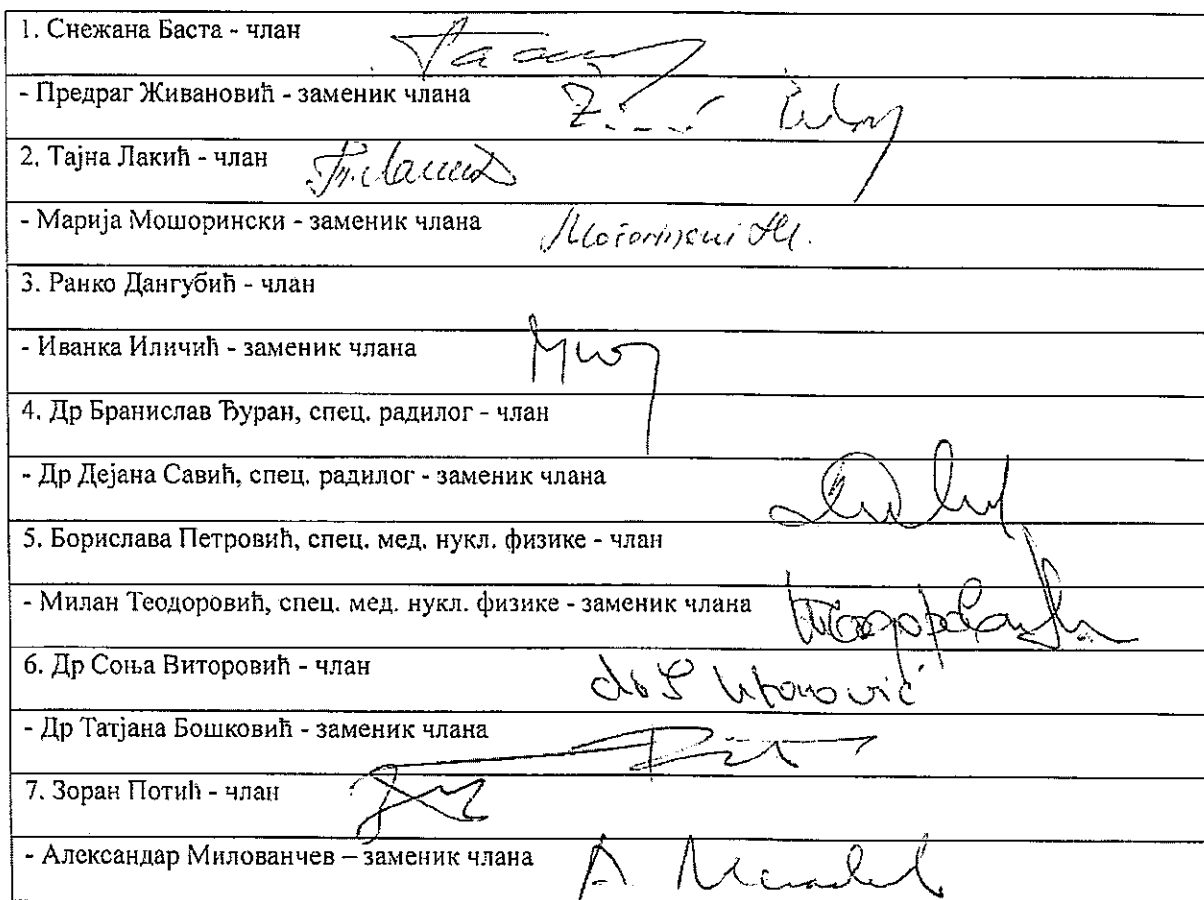 1. Снежана Баста - члан
- Предраг Живановић - заменик члана
2. Тајна Лакић - члан
- Марија Мошорински - заменик члана
3. Ранко Дангубић - члан
- Иванка Иличић - заменик члана
4. Др Бранислав Ђуран, спец. радилог - члан
- Др Дејана Савић, спец. радилог - заменик члана
5. Борислава Петровић, спец. мед. нукл. физике - члан
- Милан Теодоровић, спец. мед. нукл. физике - заменик члана
6. Др Соња Виторовић - члан
- Др Татјана Бошковић - заменик члана
7. Зоран Потић - члан
- Александар Милованчев – заменик члана